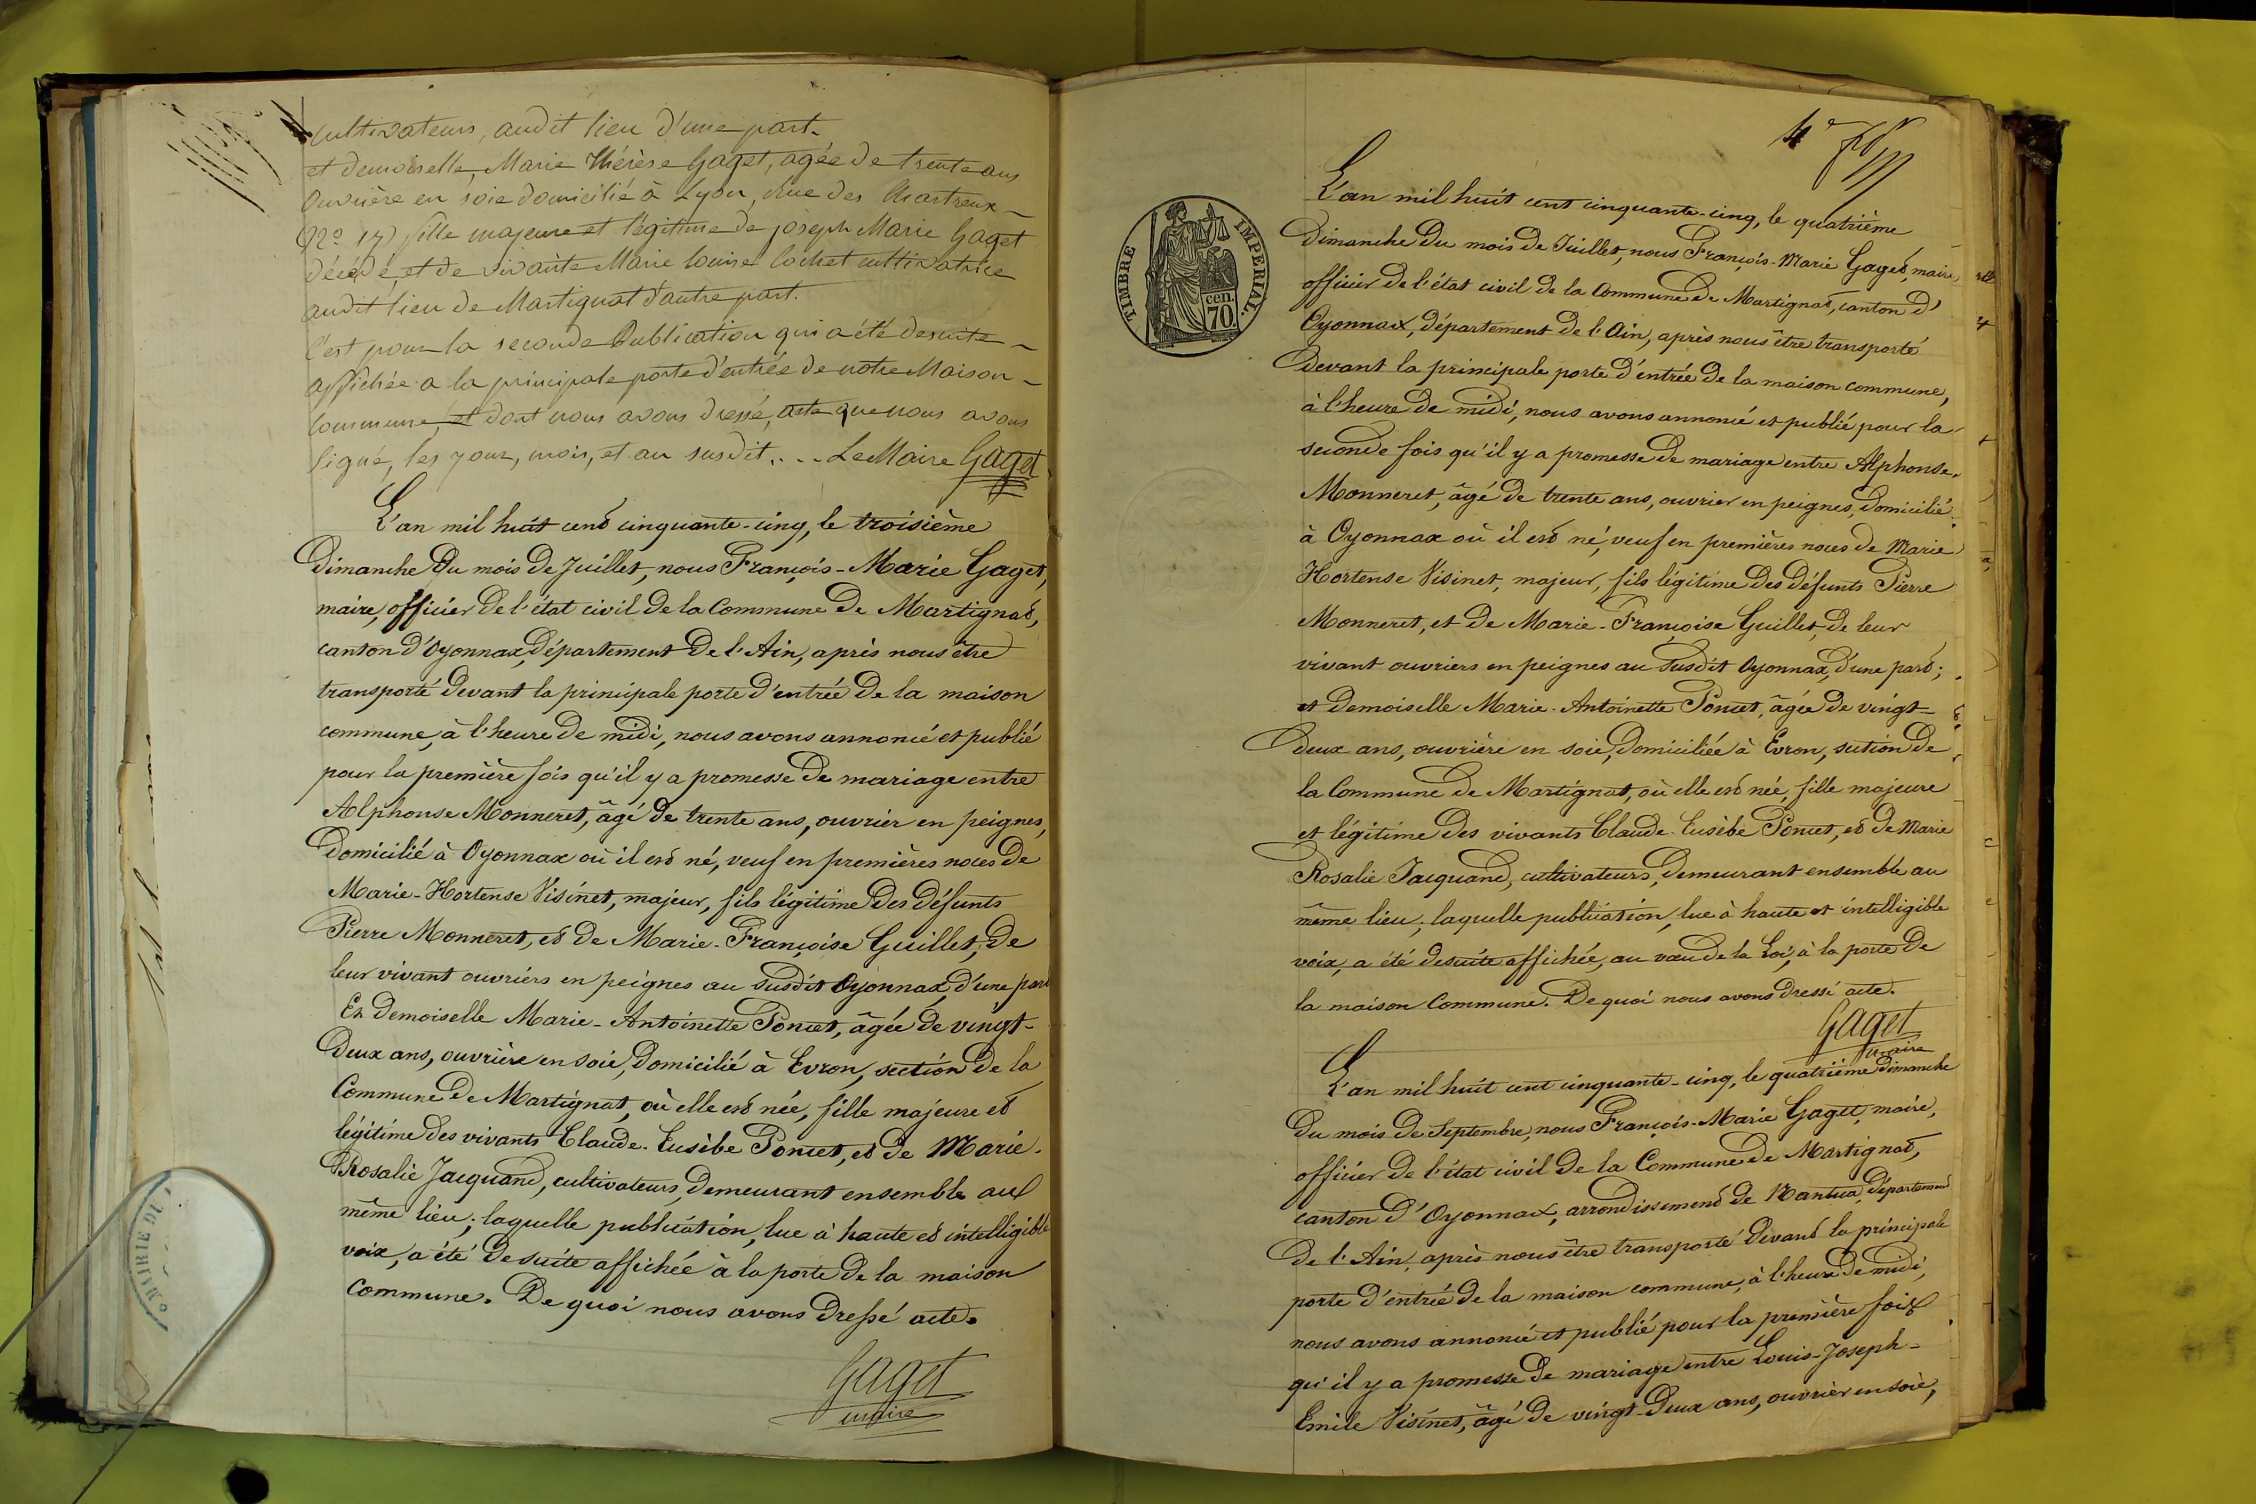 cultivateurs, audit lieu d'une part.
et demoiselle, Marie Thérèse Gaget, agée de trente ans
Ouvrière en soie domicilié à Lyon, Rue des Chartreux
(No 17) fille majeure et légitime de joseph Marie Gaget
décédé, et de vivante Marie Louise Cochet cultivatrice
audit lieu de Martignat d'autre part.
C'est pour la seconde Publication qui a été desuite
affichée a la principale porte d'entrée de notre Maison
Commune, et dont nous avons dressé, acte que nous avons
signé, les jour, mois, et an susdit... Le Maire Gaget
L'an mil huit cent cinquante-cinq, le troisième
Dimanche Du mois de Juillet, nous François-Marie Gaget,
maire, officier de l'état civil de la Commune de Martignat,
canton d'Oyonnax, Département de l'Ain, après nous être
transporté devant la principale porte d'entrée de la maison
commune, à l'heure de midi, nous avons annoncé et publié
pour la première fois qu'il y a promesse de mariage entre
Alphonse Monneret, âgé de trente ans, ouvrier en peignes,
Domicilié à Oyonnax où il est né, veuf en premières noces de
Marie-Hortense Visinet, majeur, fils légitime des défunts
Pierre Monneret, et de Marie-Françoise Guillet, de
leur vivant ouvriers en peignes au susdit Oyonnax, d'une part
Et demoiselle Marie-Antoinette Poncet, âgée de vingt-
Deux ans, ouvrière en soie, domicilié à Evron, section de la
Commune de Martignat, où elle est née, fille majeure et
légitime des vivants Claude-Eusèbe Poncet, et de Marie-
Rosalie Jacquand, cultivateurs, demeurant ensemble au
même lieu; laquelle publication, lue à haute et intelligible
voix, a été de suite affichée à la porte de la maison
Commune. De quoi nous avons dressé acte.
Gaget
maire
MAIRIE DE
4e
TIMBRE IMPERIAL.
cen.
70
L'an mil huit cent cinquante-cinq, le quatrième
Dimanche du mois de Juillet, nous François-Marie Gaget, maire,
officier de l'état civil de la Commune de Martignat, canton d'
Oyonnax, département de l'Ain, après nous être transporté
Devant la principale porte d'entrée de la maison commune,
à l'heure de midi, nous avons annoncé et publié pour la
seconde fois qu'il y a promesse de mariage entre Alphonse
Monneret, âgé de trente ans, ouvrier en peignes, domicilié
à Oyonnax où il est né, veuf en premières noces de Marie
Hortense Visinet, majeur, fils légitime des défunts Pierre
Monneret, et de Marie-Françoise Guillet, de leur
vivant ouvriers en peignes au susdit Oyonnax, d'une part;
et demoiselle Marie-Antoinette Poncet, âgée de vingt-
Deux ans, ouvrière en soie, domiciliée à Evron, section de
la Commune de Martignat, où elle est née, fille majeure
et légitime des vivants Claude-Eusèbe Poncet, et de Marie
Rosalie Jacquand, cultivateurs, demeurant ensemble au
même lieu; laquelle publication, lue à haute et intelligible
voix, a été desuite affichée, au vœu de la Loi, à la porte de
la maison Commune. De quoi nous avons dressé acte.
Gaget
maire
L'an mil huit cent cinquante-cinq, le quatrième Dimanche
Du mois de Septembre, nous François-Marie Gaget, maire,
officier de l'état civil de la Commune de Martignat,
canton d'Oyonnax, arrondissement de Nantua, département
de l'Ain, après nous être transporté devant la principale
porte d'entrée de la maison commune, à l'heure de midi,
nous avons annoncé et publié pour la première fois
qu'il y a promesse de mariage entre Louis-Joseph-
Emile Visinet, âgé de vingt-Deux ans, ouvrier en soie,